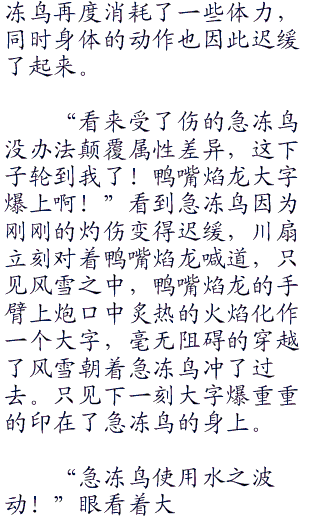 冻鸟再度消耗了一些体力，
同时身体的动作也因此迟缓
了起来。
“看来受了伤的急冻鸟
没办法颠覆属性差异，这下
子轮到我了！鸭嘴焰龙大字
爆上啊！”看到急冻鸟因为
刚刚的灼伤变得迟缓，川扇
立刻对着鸭嘴焰龙喊道，只
见风雪之中，鸭嘴焰龙的手
臂上炮口中炙热的火焰化作
一个大字，毫无阻碍的穿越
了风雪朝着急冻鸟冲了过
去。只见下一刻大字爆重重
的印在了急冻鸟的身上。
“急冻鸟使用水之波
动！”眼看着大